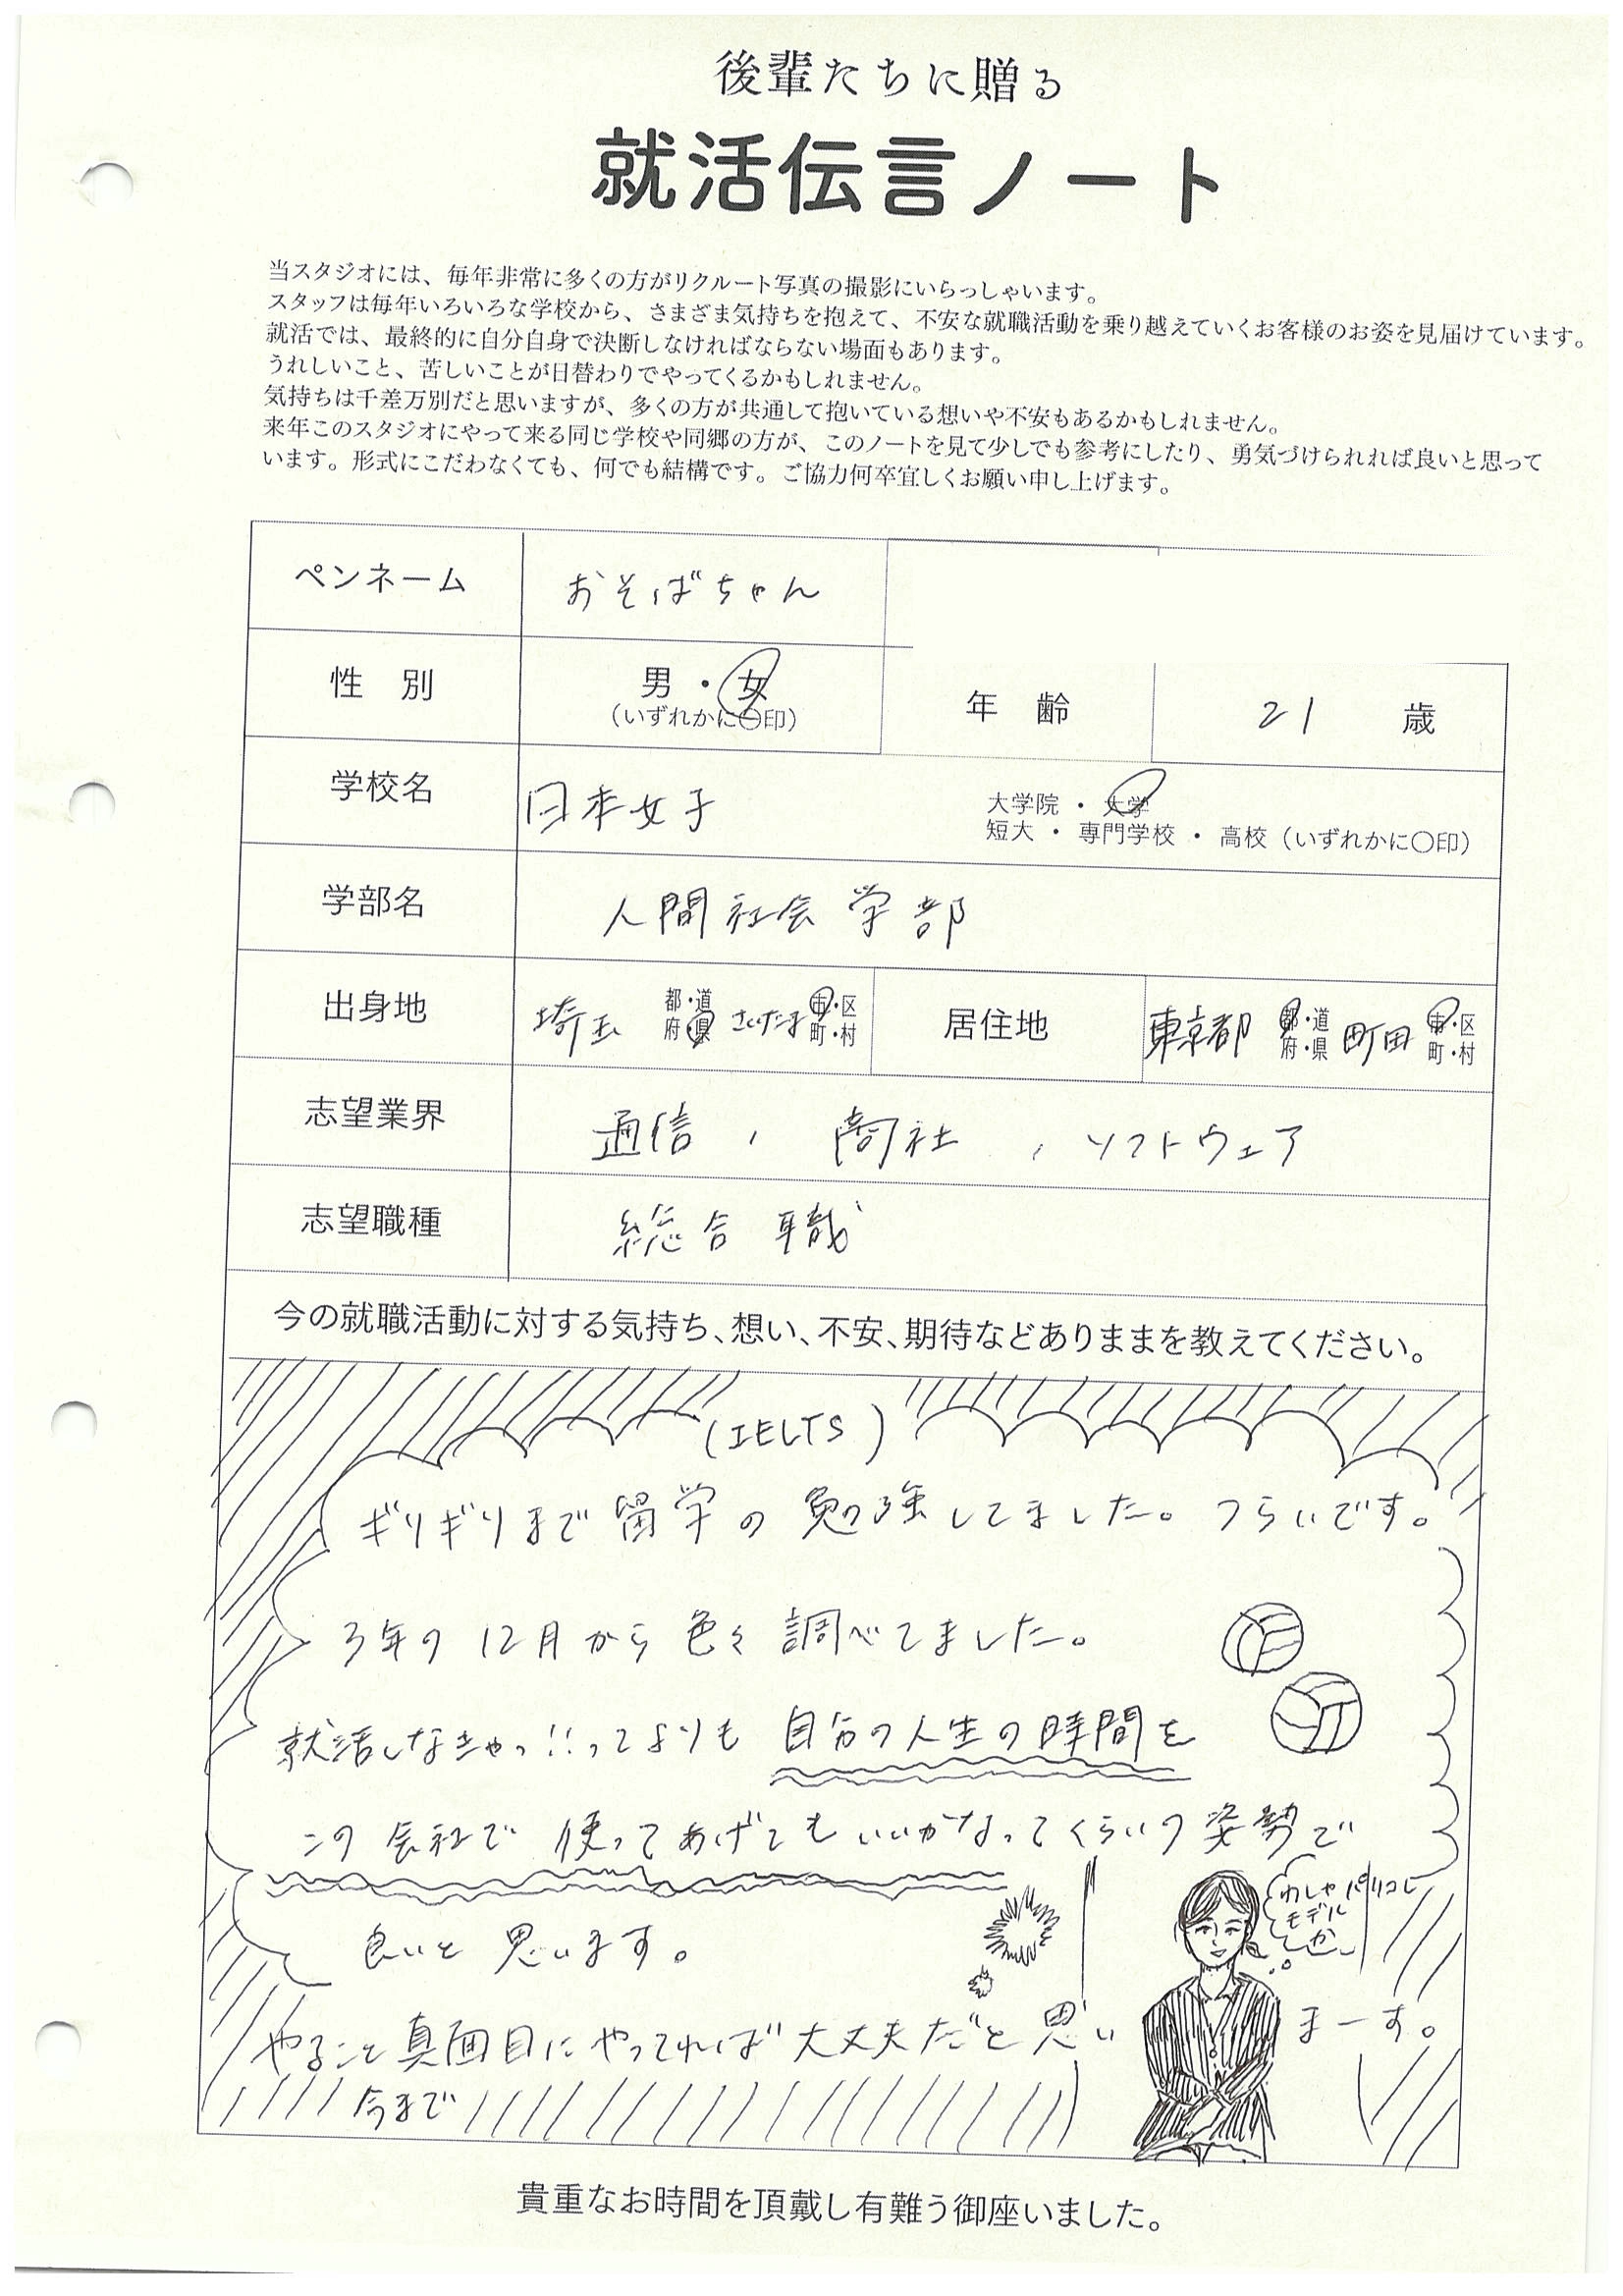 後輩たちに贈る
就活伝言ノート
当スタジオには、毎年非常に多くの方がリクルート写真の撮影にいらっしゃいます。
スタッフは毎年いろいろな学校から、さまざま気持ちを抱えて、不安な就職活動を乗り越えていくお客様のお姿を見届けています。
就活では、最終的に自分自身で決断しなければならない場面もあります。
うれしいこと、苦しいことが日替わりでやってくるかもしれません。
気持ちは千差万別だと思いますが、多くの方が共通して抱いている想いや不安もあるかもしれません。
来年このスタジオにやって来る同じ学校や同郷の方が、このノートを見て少しでも参考にしたり、勇気づけられれば良いと思って
います。形式にこだわなくても、何でも結構です。ご協力何卒宜しくお願い申し上げます。
ペンネーム おそばちゃん
性 別 男 ・ 女
(いずれかに〇印)
年 齢 21 歳
学校名 日本女子 大学院 ・ 大学
短大 ・ 専門学校 ・ 高校 (いずれかに〇印)
学部名 人間社会学部
出身地 埼玉 都・道 さいたま 市・区
府・県 町・村
居住地 東京都 都・道 町田 市・区
府・県 町・村
志望業界 通信 , 商社 , ソフトウェア
志望職種 総合職
今の就職活動に対する気持ち、想い、不安、期待などありままを教えてください。
(IELTS)
ギリギリまで留学の勉強してました。つらいです。
3年の12月から色々調べてました。
就活しなきゃっ!!ってよりも 自分の人生の時間を
この会社で使ってあげてもいいかなってくらいの姿勢で
良いと思います。
わしゃパリコレ
モデル
か
やること真面目にやってれば大丈夫だと思いまーす。
今まで
貴重なお時間を頂戴し有難う御座いました。